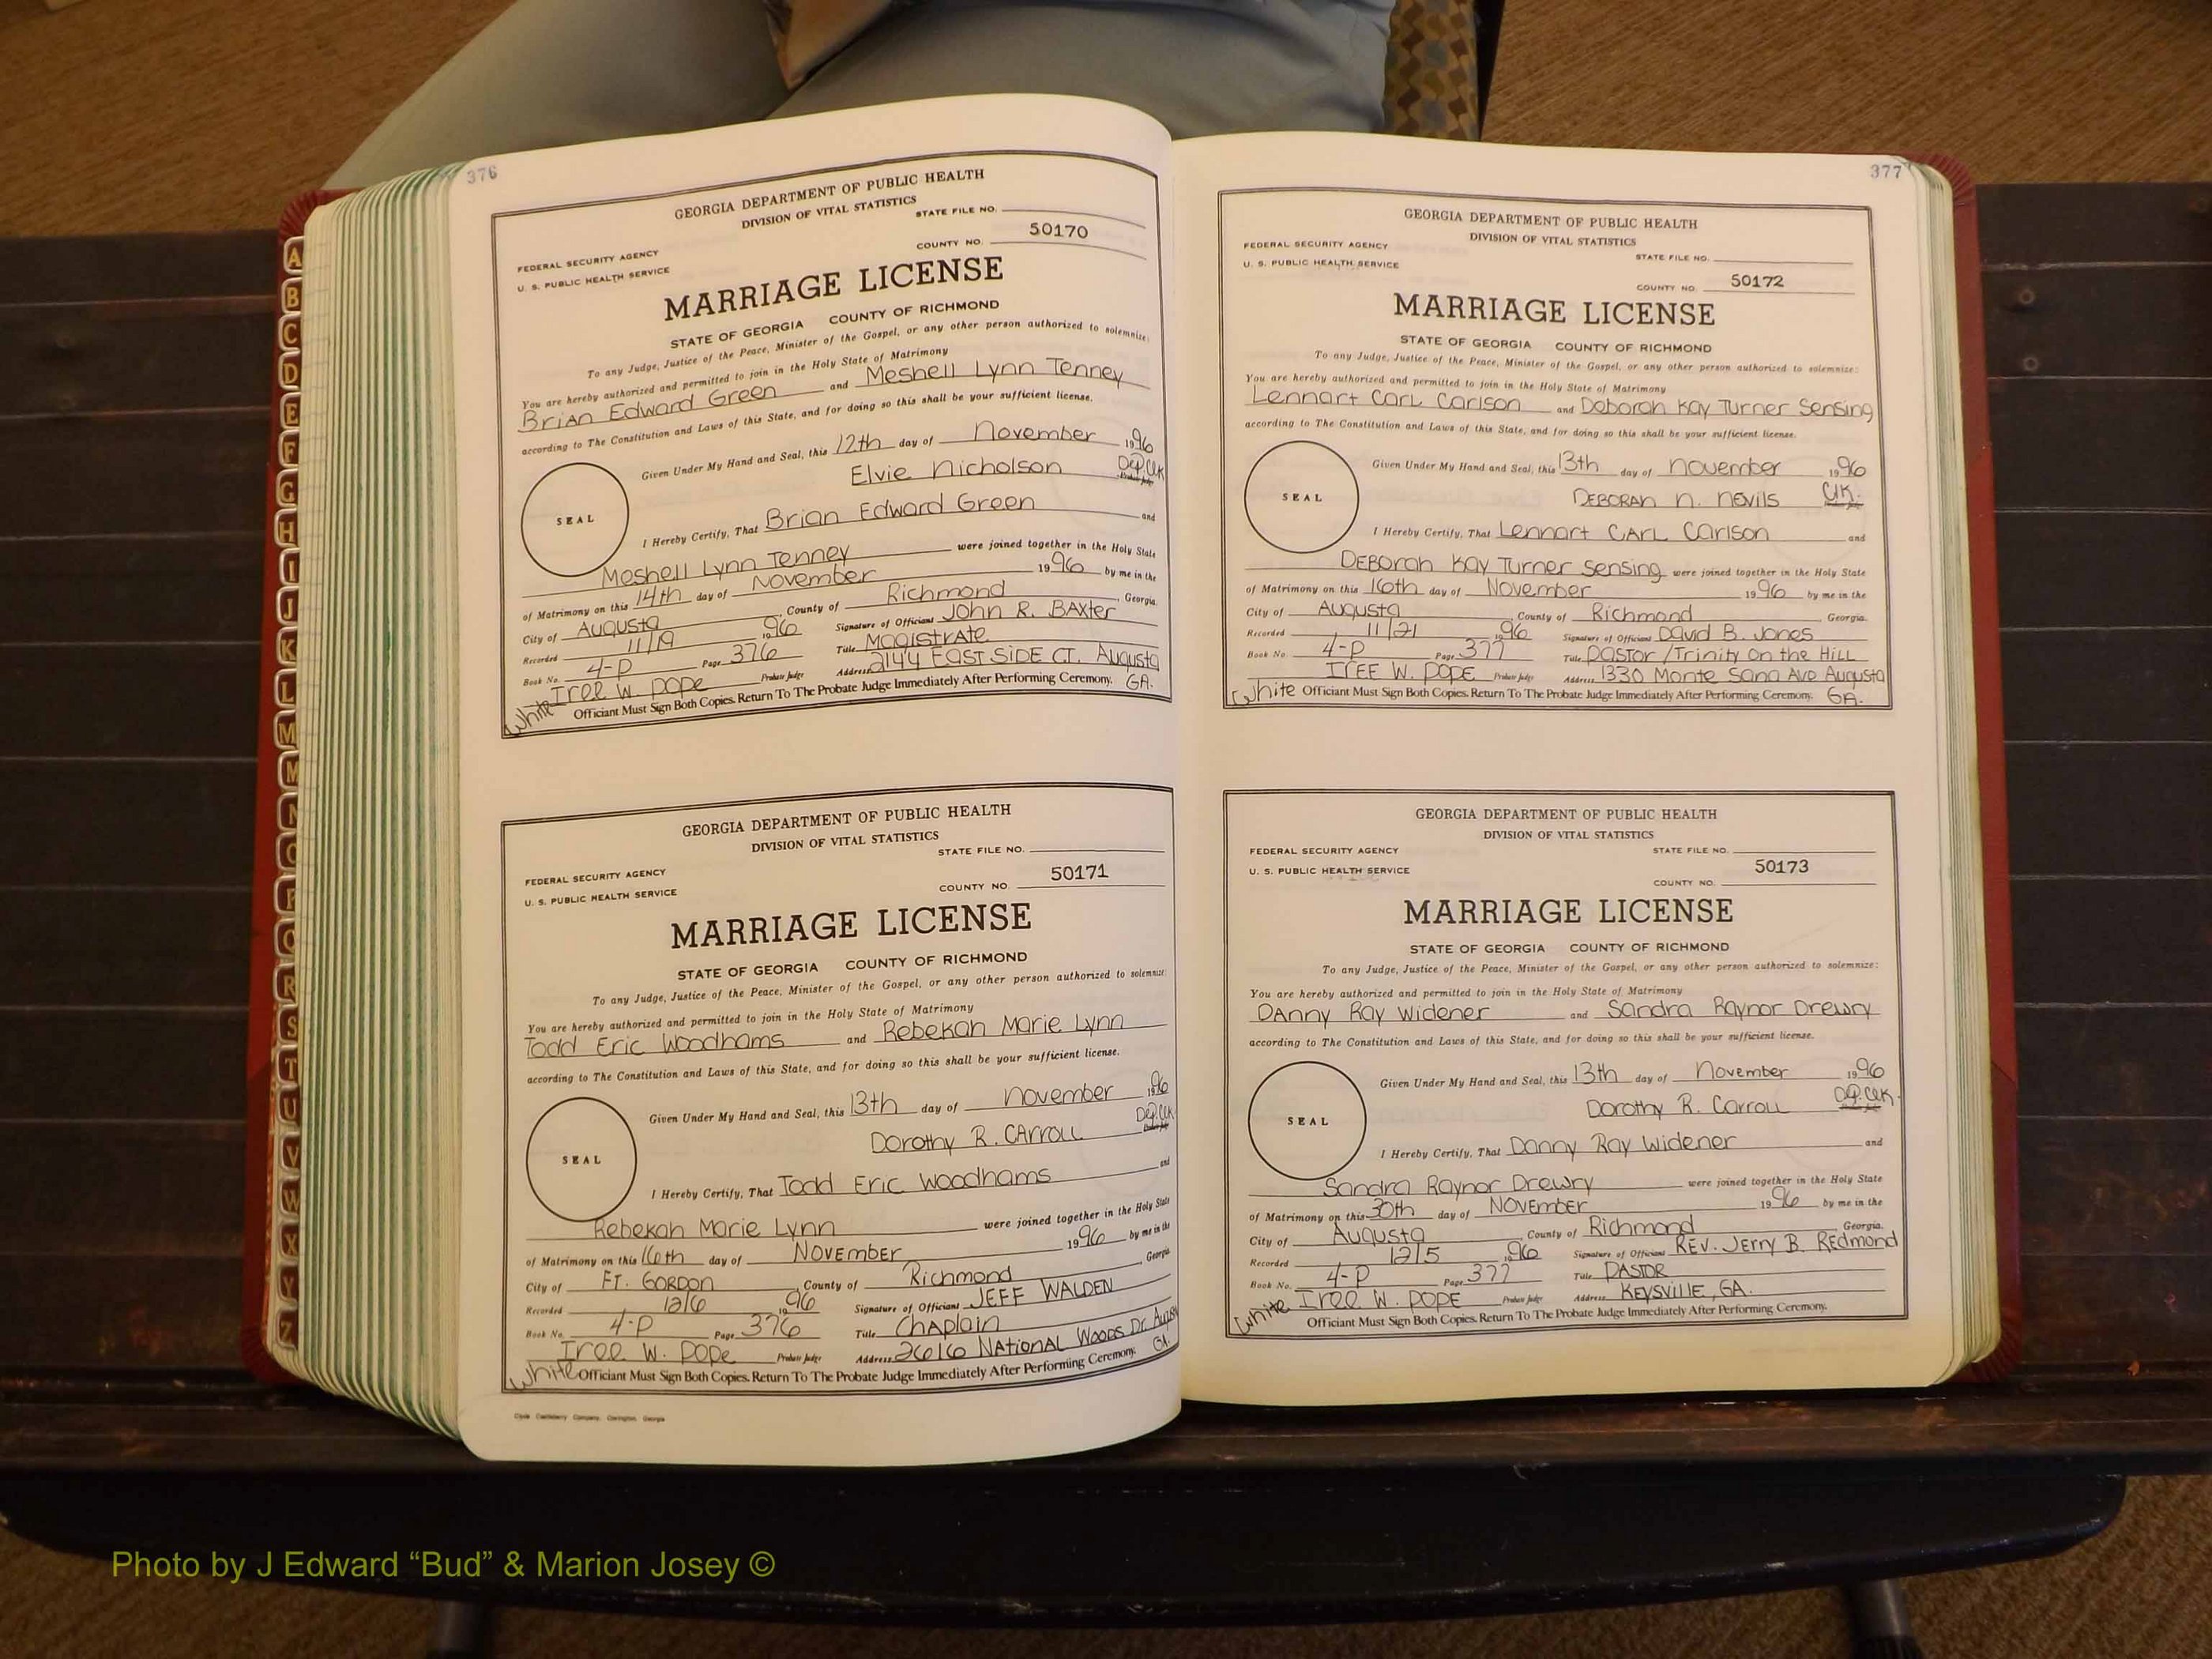 376
GEORGIA DEPARTMENT OF PUBLIC HEALTH
DIVISION OF VITAL STATISTICS
STATE FILE NO.
FEDERAL SECURITY AGENCY
COUNTY NO. 50170
U. S. PUBLIC HEALTH SERVICE
MARRIAGE LICENSE
STATE OF GEORGIA COUNTY OF RICHMOND
To any Judge, Justice of the Peace, Minister of the Gospel, or any other person authorized to solemnize:
You are hereby authorized and permitted to join in the Holy State of Matrimony
Brian Edward Green and Meshell Lynn Tenney
according to The Constitution and Laws of this State, and for doing so this shall be your sufficient license.
Given Under My Hand and Seal, this 12th day of November 1996
Elvie Nicholson Dep. Clk
SEAL
I Hereby Certify, That Brian Edward Green and
Meshell Lynn Tenney were joined together in the Holy State
of Matrimony on this 14th day of November 1996 by me in the
City of Augusta County of Richmond, Georgia.
Recorded 11/19 1996 Signature of Officiant John R. BAxter
Book No. 4-P Page 376 Title Magistrate
Iree W. Pope Probate Judge Address 2144 EAST SIDE CT. Augusta
White Officiant Must Sign Both Copies. Return To The Probate Judge Immediately After Performing Ceremony. GA.
GEORGIA DEPARTMENT OF PUBLIC HEALTH
DIVISION OF VITAL STATISTICS
STATE FILE NO.
FEDERAL SECURITY AGENCY
COUNTY NO. 50171
U. S. PUBLIC HEALTH SERVICE
MARRIAGE LICENSE
STATE OF GEORGIA COUNTY OF RICHMOND
To any Judge, Justice of the Peace, Minister of the Gospel, or any other person authorized to solemnize:
You are hereby authorized and permitted to join in the Holy State of Matrimony
Todd Eric Woodhams and Rebekah Marie Lynn
according to The Constitution and Laws of this State, and for doing so this shall be your sufficient license.
Given Under My Hand and Seal, this 13th day of November 1996
Dorothy R. CArroll Dep. Clk
SEAL
I Hereby Certify, That Todd Eric Woodhams and
Rebekah Marie Lynn were joined together in the Holy State
of Matrimony on this 16th day of November 1996 by me in the
City of Ft. Gordon County of Richmond, Georgia.
Recorded 12/6 1996 Signature of Officiant JEFF WALDEN
Book No. 4-P Page 376 Title Chaplain
Iree W. Pope Probate Judge Address 2616 National Woods Dr.
White Officiant Must Sign Both Copies. Return To The Probate Judge Immediately After Performing Ceremony. GA.
377
GEORGIA DEPARTMENT OF PUBLIC HEALTH
DIVISION OF VITAL STATISTICS
FEDERAL SECURITY AGENCY
STATE FILE NO.
U. S. PUBLIC HEALTH SERVICE
COUNTY NO. 50172
MARRIAGE LICENSE
STATE OF GEORGIA COUNTY OF RICHMOND
To any Judge, Justice of the Peace, Minister of the Gospel, or any other person authorized to solemnize:
You are hereby authorized and permitted to join in the Holy State of Matrimony
Lennart Carl Carlson and Deborah Kay Turner Sensing
according to The Constitution and Laws of this State, and for doing so this shall be your sufficient license.
Given Under My Hand and Seal, this 13th day of november 1996
DEBORAH N. NEVILS Clk.
SEAL
I Hereby Certify, That Lennart CARL Carlson and
DEBorah Kay Turner Sensing were joined together in the Holy State
of Matrimony on this 16th day of November 1996 by me in the
City of Augusta County of Richmond Georgia.
Recorded 11/21 1996 Signature of Officiant David B. Jones
Book No. 4-P Page 377 Title Pastor/Trinity on the Hill
IREE W. POPE Probate Judge Address 1330 Monte Sano Ave Augusta
White Officiant Must Sign Both Copies. Return To The Probate Judge Immediately After Performing Ceremony. GA.
GEORGIA DEPARTMENT OF PUBLIC HEALTH
DIVISION OF VITAL STATISTICS
FEDERAL SECURITY AGENCY
STATE FILE NO.
U. S. PUBLIC HEALTH SERVICE
COUNTY NO. 50173
MARRIAGE LICENSE
STATE OF GEORGIA COUNTY OF RICHMOND
To any Judge, Justice of the Peace, Minister of the Gospel, or any other person authorized to solemnize:
You are hereby authorized and permitted to join in the Holy State of Matrimony
DAnny Ray Widener and Sandra Raynor Drewry
according to The Constitution and Laws of this State, and for doing so this shall be your sufficient license.
Given Under My Hand and Seal, this 13th day of November 1996
Dorothy R. Carroll Dep. Clk.
SEAL
I Hereby Certify, That Danny Ray Widener and
Sandra Raynor Drewry were joined together in the Holy State
of Matrimony on this 30th day of NOVEMBER 1996 by me in the
City of Augusta County of Richmond, Georgia.
Recorded 12/5 1996 Signature of Officiant REV. Jerry B. REdmond
Book No. 4-P Page 377 Title PASTOR
Iree W. POPE Probate Judge Address KEYSVILLE, GA.
White Officiant Must Sign Both Copies. Return To The Probate Judge Immediately After Performing Ceremony.
A
B
C
D
E
F
G
H
I
J
K
L
M
M
N
O
P
Q
R
S
T
U
V
W
X
Y
Z
Photo by J Edward “Bud” & Marion Josey ©